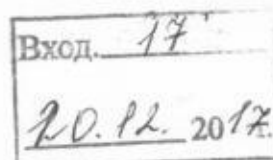 Вход. 17
20.12. 2017